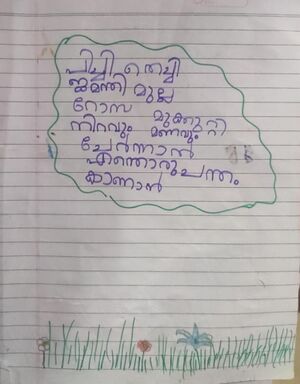 പിച്ചി തെച്ചി
ജമന്തി മുല്ല
റോസ മുക്കുറ്റി
നിറവും മണവും
ചേർന്നാൽ
എന്തൊരു ചന്തം
കാണാൻ